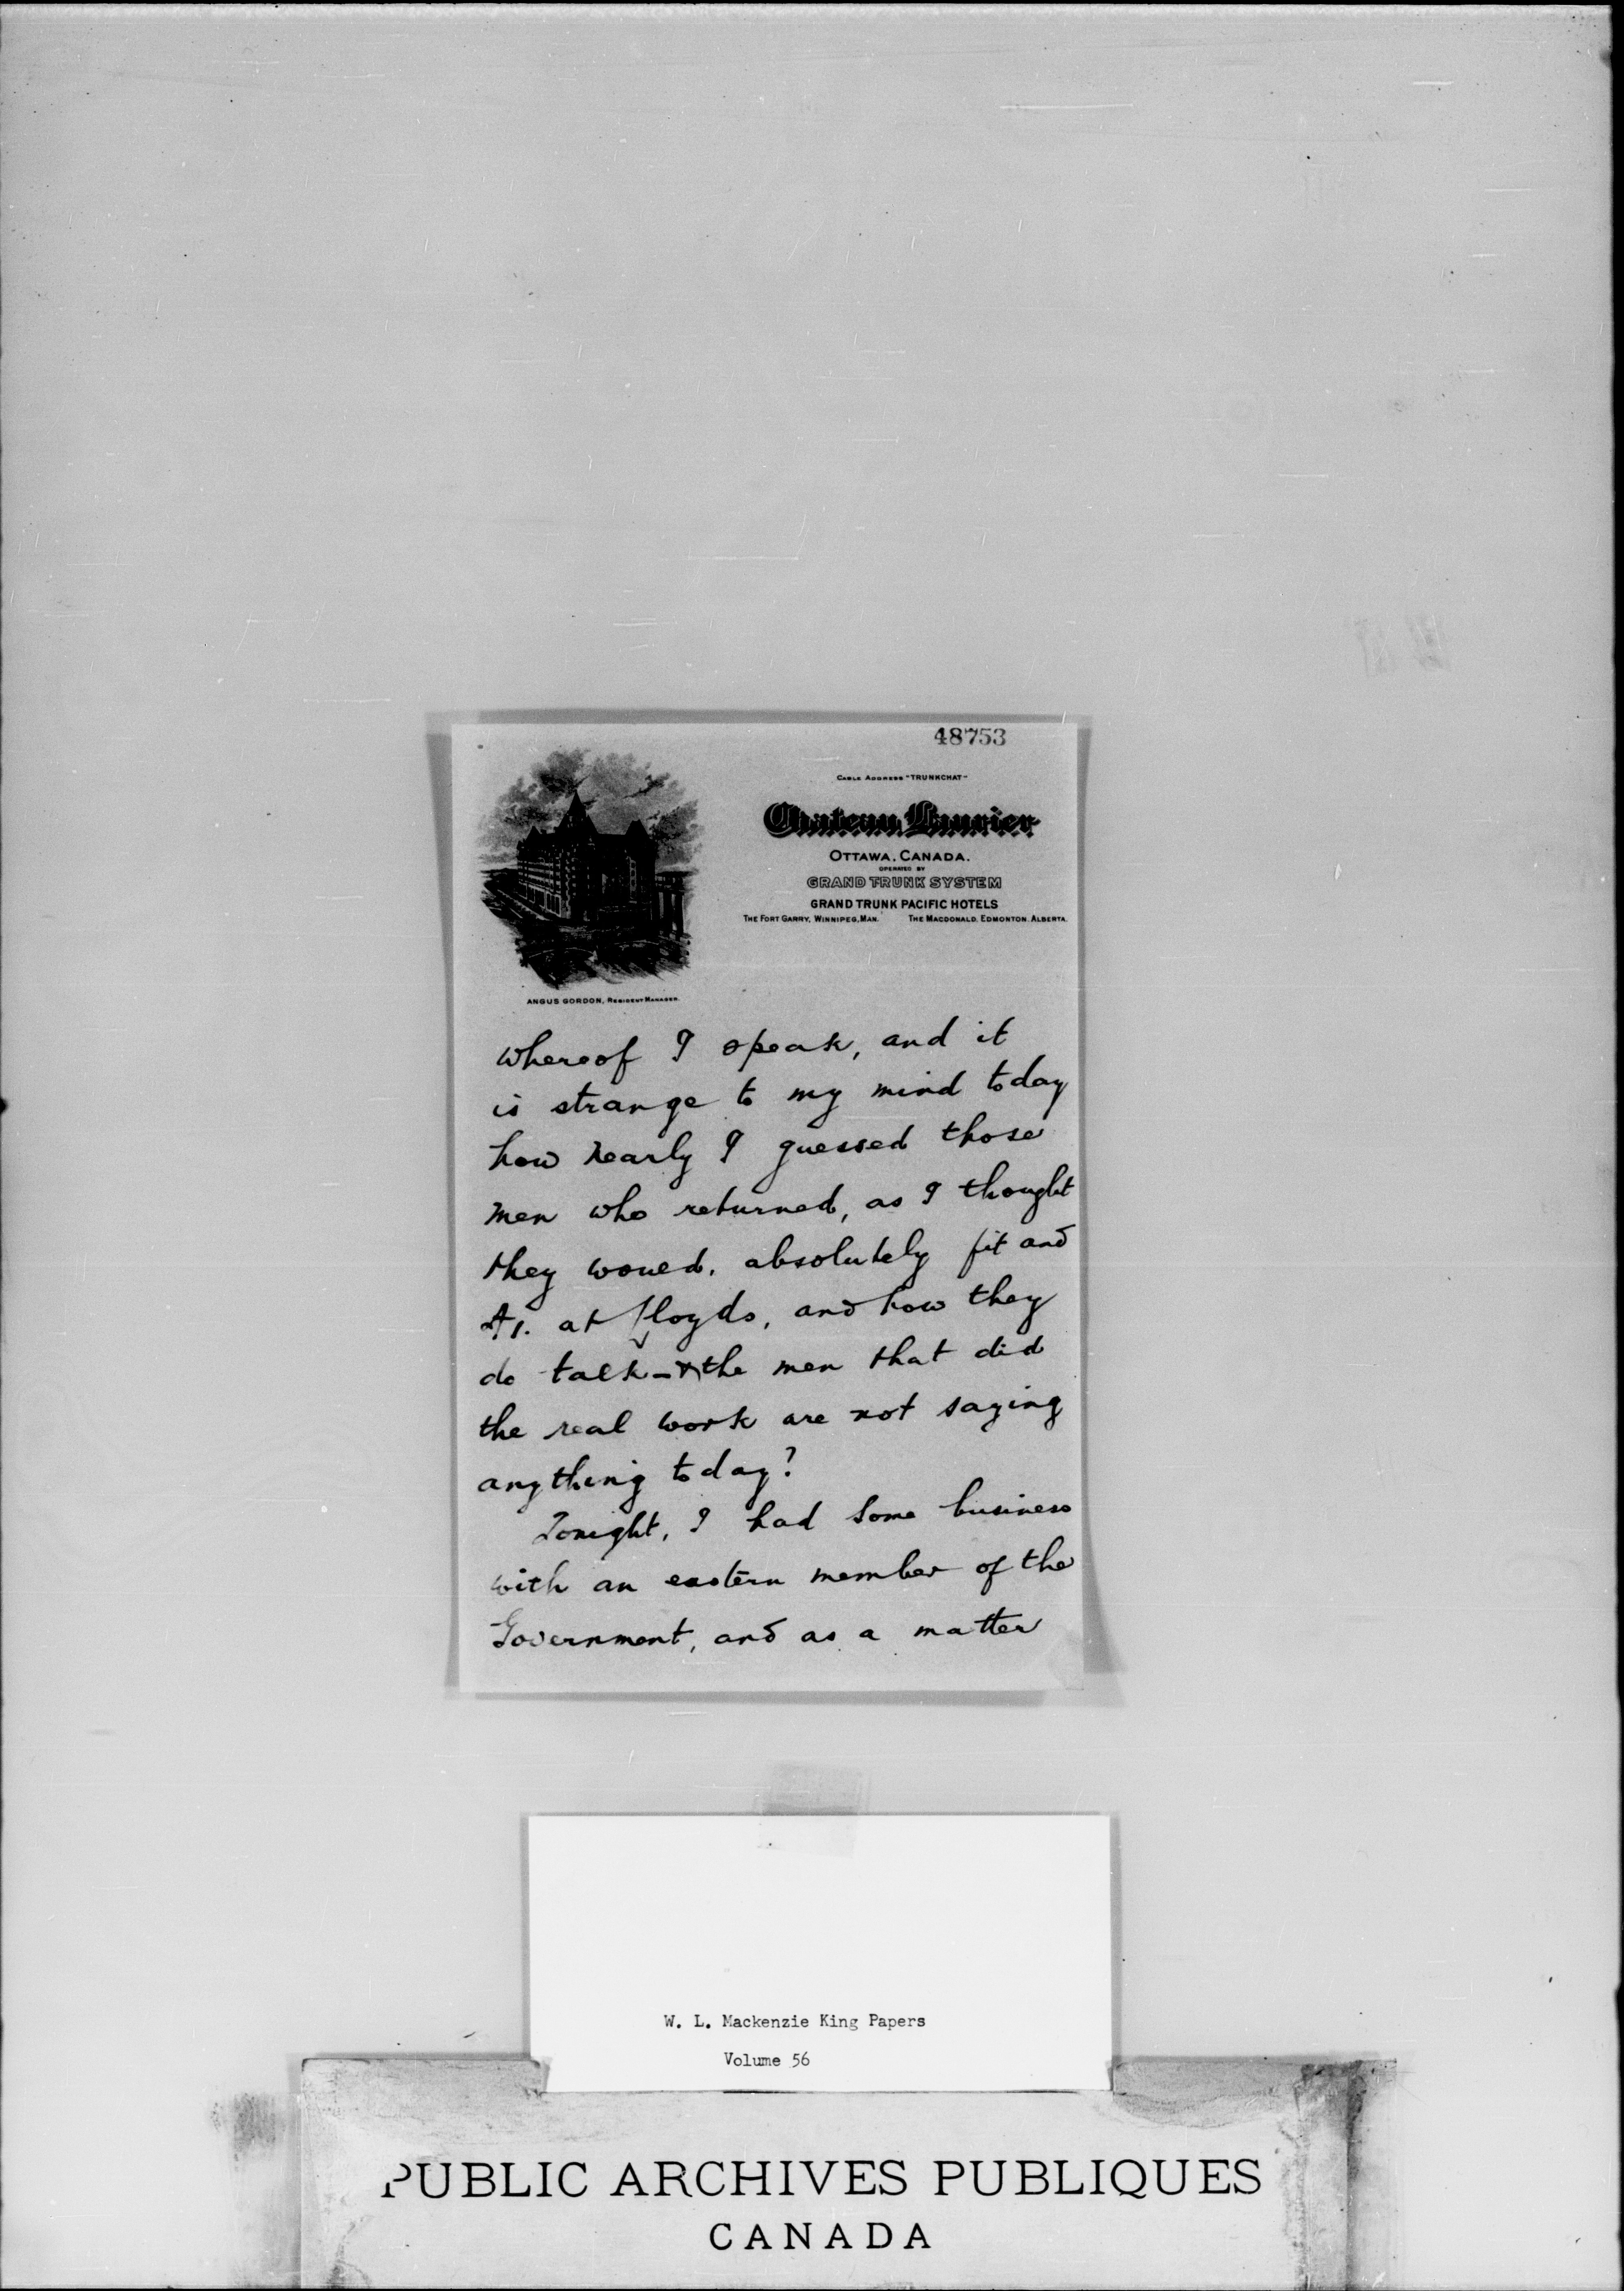 48753
CABLE ADDRESS "TRUNKCHAT"
Chateau Laurier
OTTAWA, CANADA.
OPERATED BY
GRAND TRUNK SYSTEM
GRAND TRUNK PACIFIC HOTELS
THE FORT GARRY, WINNIPEG, MAN. THE MACDONALD, EDMONTON, ALBERTA.
ANGUS GORDON, RESIDENT MANAGER.
whereof I speak, and it
is strange to my mind today
how nearly I guessed those
men who returned, as I thought
they woued. absolutely fit and
A1. at Lloyds, and how they
do talk - & the men that did
the real work are not saying
anything today?
Tonight, I had some business
with an eastern member of the
Government, and as a matter
W. L. Mackenzie King Papers
Volume 56
PUBLIC ARCHIVES PUBLIQUES
CANADA